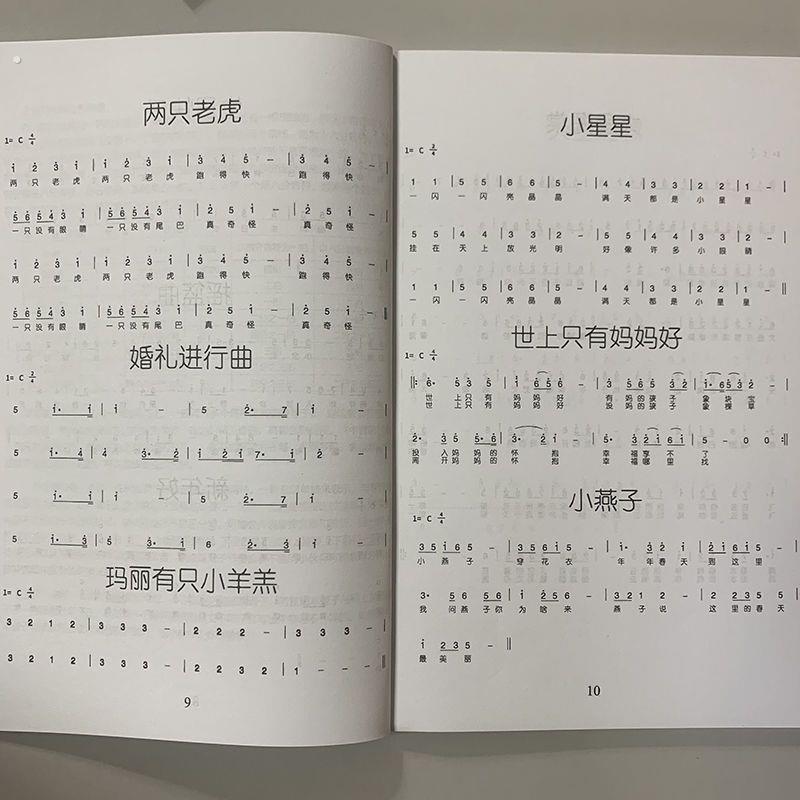 两只老虎
1= C 4/4
1 2 3 1 | 1 2 3 1 | 3 4 5 - | 3 4 5 -
两 只 老 虎 两 只 老 虎 跑 得 快 跑 得 快
5 6 5 4 3 1 | 5 6 5 4 3 1 | 2 5 1 - | 2 5 1 -
一只没有眼 睛 一只没有尾 巴 真 奇 怪 真 奇 怪
1 2 3 1 | 1 2 3 1 | 3 4 5 - | 3 4 5 -
两 只 老 虎 两 只 老 虎 跑 得 快 跑 得 快
5 6 5 4 3 1 | 5 6 5 4 3 1 | 2 5 1 - | 2 5 1 - ‖
一只没有眼 睛 一只没有尾 巴 真 奇 怪 真 奇 怪
婚礼进行曲
1= C 2/4
5 1· 1 | 1 - | 5 2· 7 | 1 -
5 1· 4 | 4 3· 2 | 1 2 1 7· 1 | 2 -
5 1· 1 | 1 - | 5 2· 7 | 1 -
5 1· 3 | 5 3· 1 | 6 2· 3 | 1 - ‖
玛丽有只小羊羔
1= C 4/4
3 2 1 2 | 3 3 3 - | 2 2 2 - | 3 3 3 -
3 2 1 2 | 3 3 3 - | 2 2 3 2 | 1 - - - ‖
9
小星星
1= C 2/4
1 1 | 5 5 | 6 6 | 5 - | 4 4 | 3 3 | 2 2 | 1 -
一 闪 一 闪 亮 晶 晶 满 天 都 是 小 星 星
5 5 | 4 4 | 3 3 | 2 - | 5 5 | 4 4 | 3 3 | 2 -
挂 在 天 上 放 光 明 好 像 许 多 小 眼 睛
1 1 | 5 5 | 6 6 | 5 - | 4 4 | 3 3 | 2 2 | 1 - ‖
一 闪 一 闪 亮 晶 晶 满 天 都 是 小 星 星
世上只有妈妈好
1= C 4/4
世 上 只 有 妈 妈 好 有 妈 的 孩 子 象 块 宝
世 上 只 有 妈 妈 好 没 妈 的 孩 子 象 棵 草
投 入 妈 妈 的 怀 抱 幸 福 享 不 了
离 开 妈 妈 的 怀 抱 幸 福 哪 里 找
小燕子
1= C 4/4
3 5 1 6 5 - | 3 5 6 1 5 - | 1· 3 2 1 | 2 1 6 5 -
小 燕 子 穿 花 衣 年 年 春 天 到 这 里
3· 5 6 5 6 | 1 2 5 6 - | 3 3 2 1 2 - | 2 2 3 5 5 -
我 问 燕 子 你 为 啥 来 燕 子 说 这 里 的 春 天
1 2 3 5 - ‖
最 美 丽
10